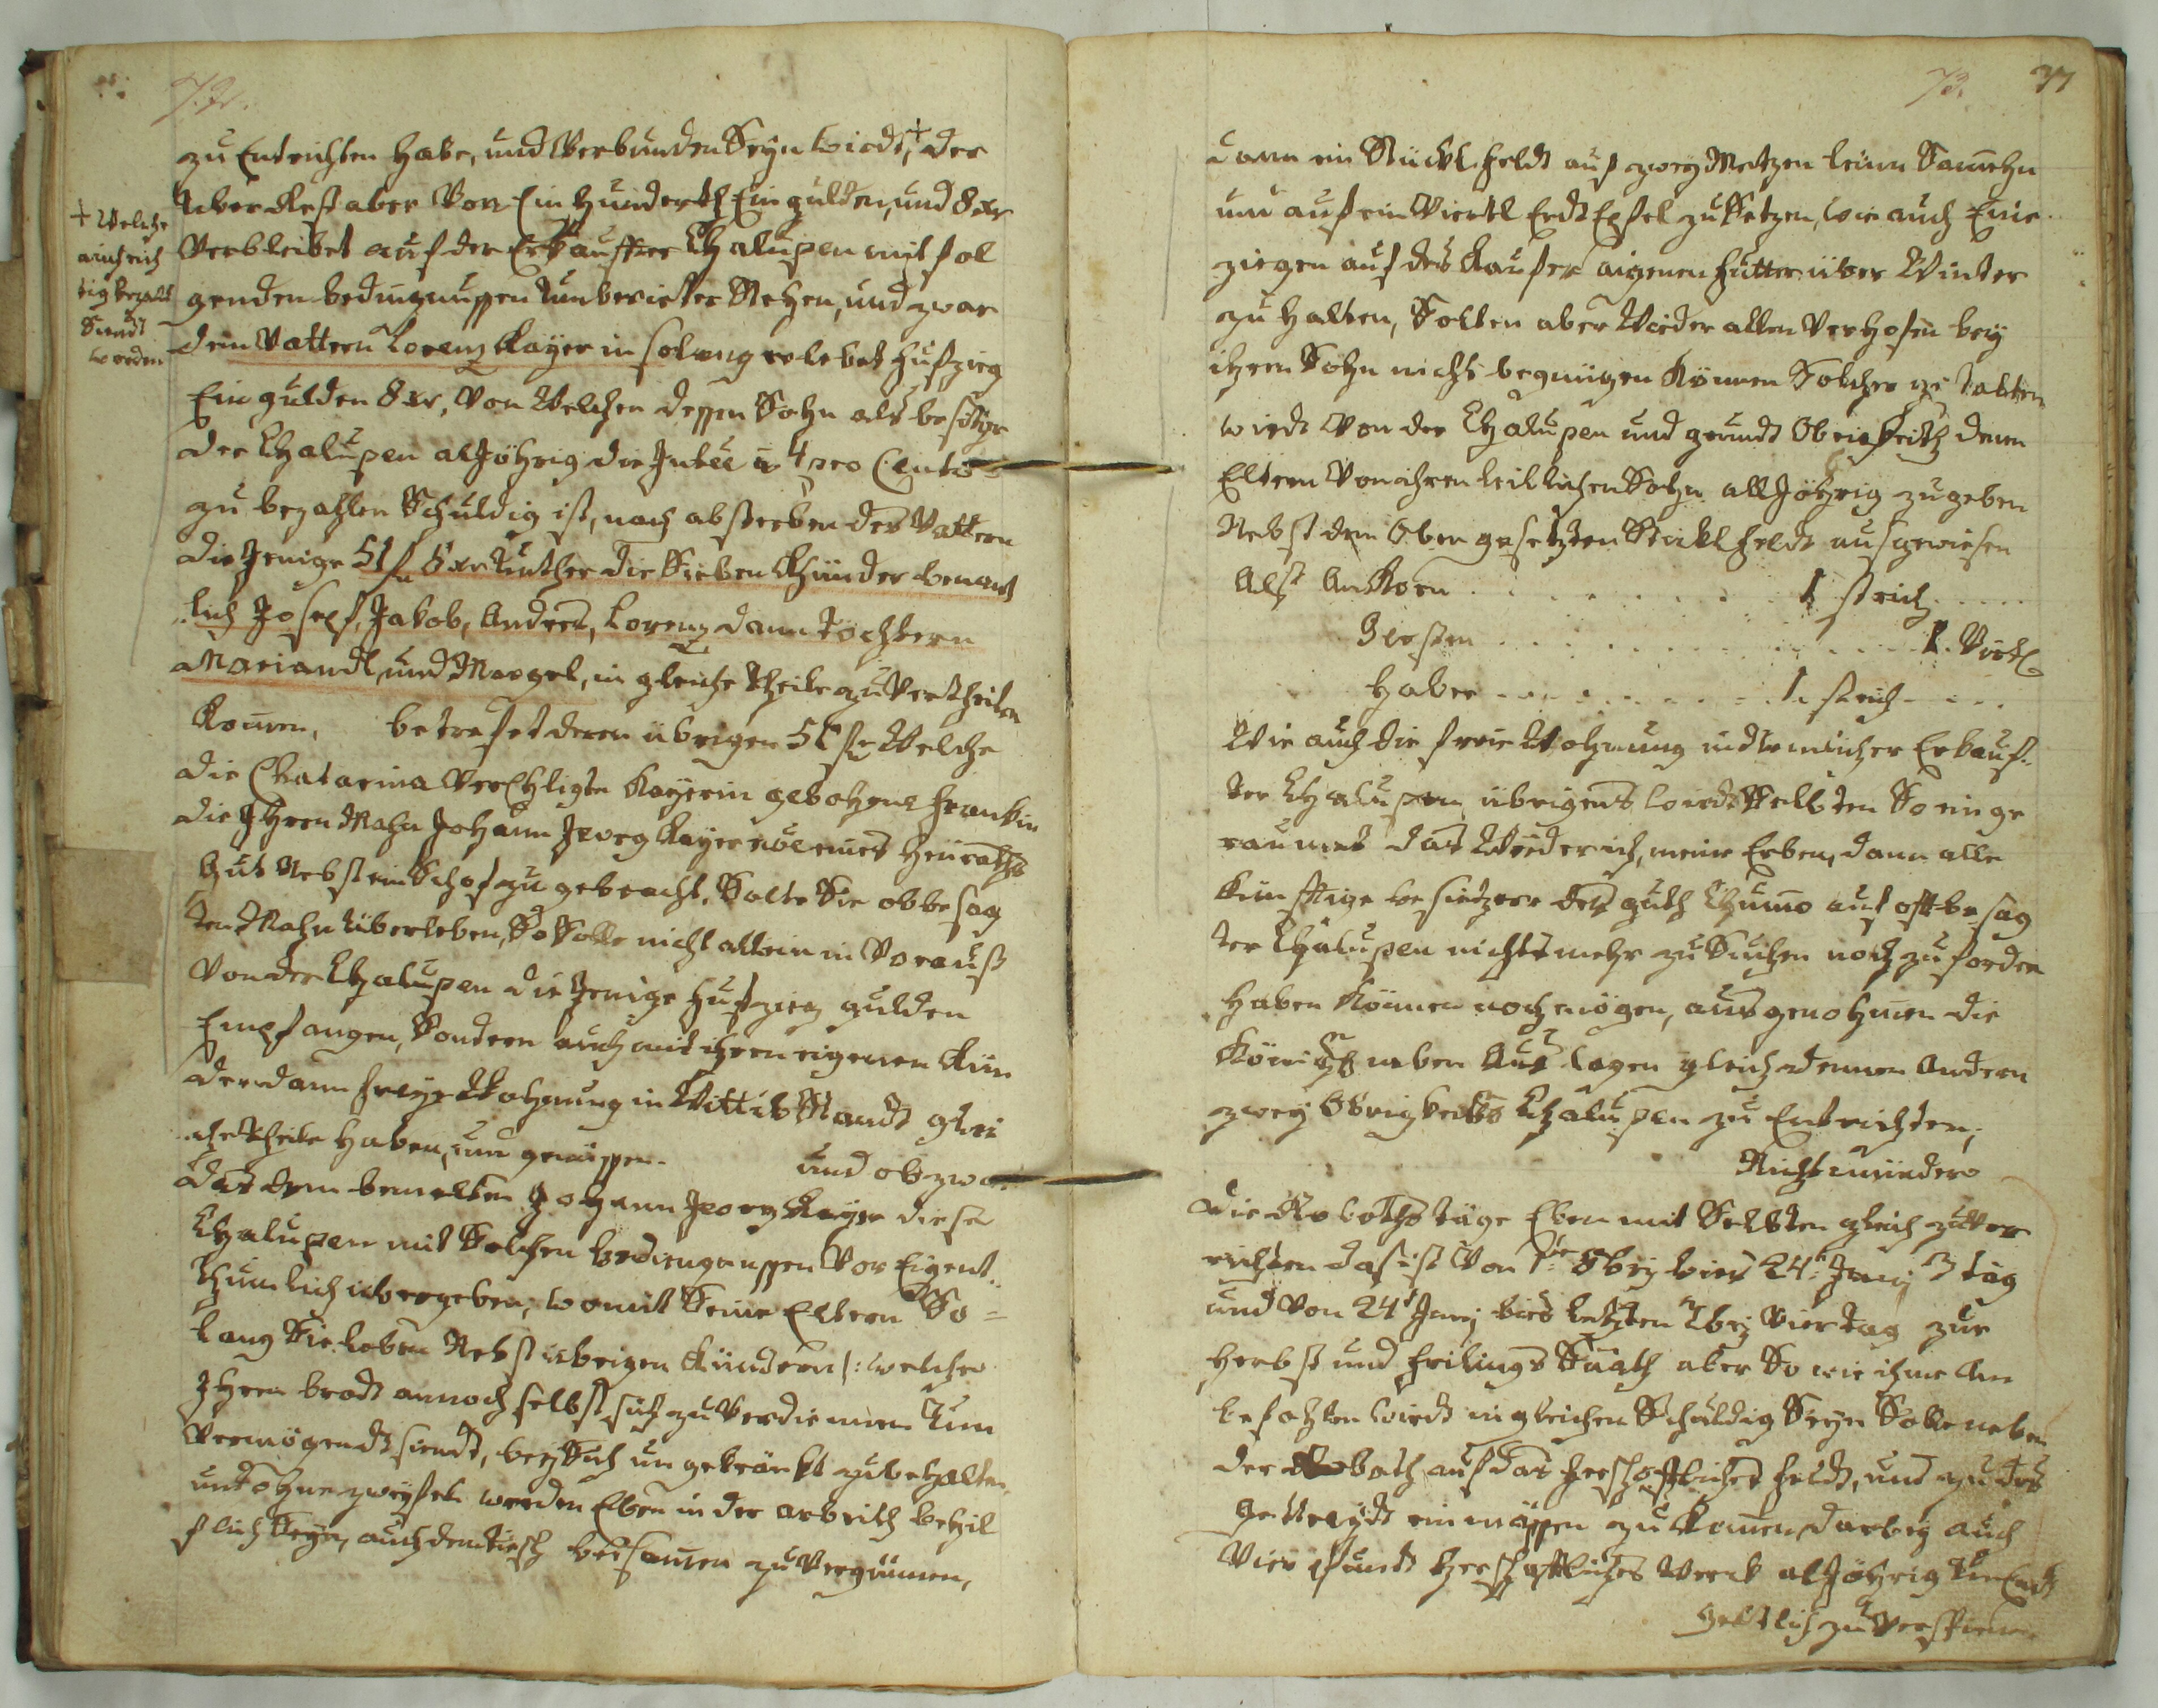 72.
zu Entrichten habe, und Verbunden Seyn wirdt, + der
Uber Rest aber Von Ein hunderth Ein gulden, und 8 xr
Verbleibet auf der Erkaufften Chalupen mit fol
genden bedingnussen Stehen, und zwar
+ Welche
auch rich
tig bezalt
Seindt
worden
dem Vattern Lorenz Kayer in so lang er lebet Fufzieg
Ein gulden 8 xr, Von Welchen dessen Sohn als besitzer
der Chalupen alljöhrig die à 4 pro Cento
zu bezahlen Schuldig ist, nach absterben des Vattern
die Jenige 51 f 8 xr Unther die Sieben Khinder benant
lich Josepf, Jakob, Andres, Lorenz dann Töchtern
Mariandl, und Margel, in gleiche theile zu Vertheilen
Komen, betrefet deren übrigen 50 f Welche
die Chatarina VerEhligte Kayerin gebohrne Frankin
die Ihren Mahn Johann Jeorg Kayer Heuraths
Gut Nebst ein Schof zu gebracht. Solte Sie obbesag
ten Mahn Uberleben, So Solle nicht allein in Vorauß
Von der Chalupen die Jenige Fufzieg gulden
Empfangen, Sondern auch mit ihren eigenen Kin
dern dann freye Wohnung in Wittib Standt glei
che theile haben, und genüssen. und obzwar
das dem bemelten Johann Jeorg Kayer diese
Chalupen mit Solchen bedingnussen Vor Eigent
thumlich übergeben, womit Seine Eltern So=
lang Sie leben Nebst übrigen Kündern /: welche
Ihren brodt annoch selbst sich zu Verdienen Un
Vermögendt seindt, bey Sich un gekränkt zu behalten
und ohne zweyfel werden Eben in der arbeith behil
flich Seyn, auch den tisch beysamen zu Vergünnen,
73. 37
dann ein Stückl Feldt auf zwey Metzen leinn Saamen
und auf ein Viertl ErdtEpfel zu Setzen, wie auch Eine
ziegen auf des Kaufers aigenen Futter über Winter
zu halten, Solten aber Wieder allen Verhofen bey
ihren Sohn nicht begnügen Können Solcher gestalten
wirdt Von der Chalupen und grundt Obrigkeith denen
Eltern Von ihren leiblichen Sohn all Jöhrig zu geben
Nebst dem Oben gesetzten Stückl Feldt ausgewiesen
Alß An Korn . . . . . . . . 1 strich . . . .
Gersten . . . . . . . . . . . 1. Viertl
Haber . . . . . . . . 1. strich . . . .
Wie auch die freie Wohnung in Erkauf
ten Chalupen, übrigens wirdt Selbten So ein ge
raumet das Weder ich, meine Erben, dann alle
Künfftige besitzere des guth Chumo auf oftbesag
ter Chalupen nichts mehr zu Suchen noch zu fordern
haben Können noch mögen, ausgenohmen die
König neben Aus lagen gleich denen Andern
zwey Obrigkeits Chalupen zu Entrichten,
Nicht minder
die Robothstäge Eben mit Selbten gleich zu Ver
richten das ist Von 1te 8bry bies 24t Juny 3 täg
und Von 24t Juny bies letzten 7bry Vier Tag zur
herbst und Frilings Saath aber So wie ihme An
befohlen wirdt in gleichen Schuldig Seyn Solle neben
der Robath auf das herschaftliches Feldt, und zu des
Getreydt einmässen zu Komen, darbey auch
Vier Pfundt herschaftliches Werck all Jöhrig UnEnt
geldlich zu Verspinnen